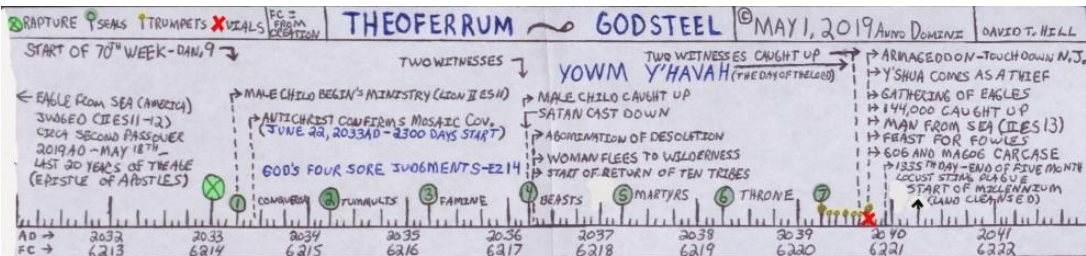 RAPTURE SEALS TRUMPETS VIALS
FC = FROM CREATION
THEOFERRUM ~ GODSTEEL
© MAY 1, 2019 ANNO DOMINI
DAVID T. HILL
START OF 70TH WEEK - DAN, 9
← EAGLE FROM SEA (AMERICA)
JUDGED (IIES11-12)
CIRCA SECOND PASSOVER
2019AD - MAY 18TH
LAST 20 YEARS OF THE AGE
(EPISTLE OF APOSTLES)
MALE CHILD BEGIN'S MINISTRY (LION IIES11)
ANTICHRIST CONFIRMS MOSAIC COV.
(JUNE 22, 2033AD - 2300 DAYS START)
GOD'S FOUR SORE JUDGMENTS - EZ14
TWO WITNESSES
YOWM Y'HAVAH (THE DAY OF THE LORD)
MALE CHILD CAUGHT UP
SATAN CAST DOWN
ABOMINATION OF DESOLATION
WOMAN FLEES TO WILDERNESS
START OF RETURN OF TEN TRIBES
TWO WITNESSES CAUGHT UP
ARMAGEDDON - TOUCHDOWN N.J.
Y'SHUA COMES AS A THIEF
GATHERING OF EAGLES
144,000 CAUGHT UP
MAN FROM SEA (IIES 13)
FEAST FOR FOWLES
GOG AND MAGOG CARCASE
1335TH DAY - END OF FIVE MONTH
LOCUST STING PLAGUE
START OF MILLENNIUM
(LAND CLEANSED)
1 CONQUER 2 TUMULTS 3 FAMINE 4 BEASTS 5 MARTYRS 6 THRONE 7
AD → 2032 2033 2034 2035 2036 2037 2038 2039 2040 2041
FC → 6213 6214 6215 6216 6217 6218 6219 6220 6221 6222